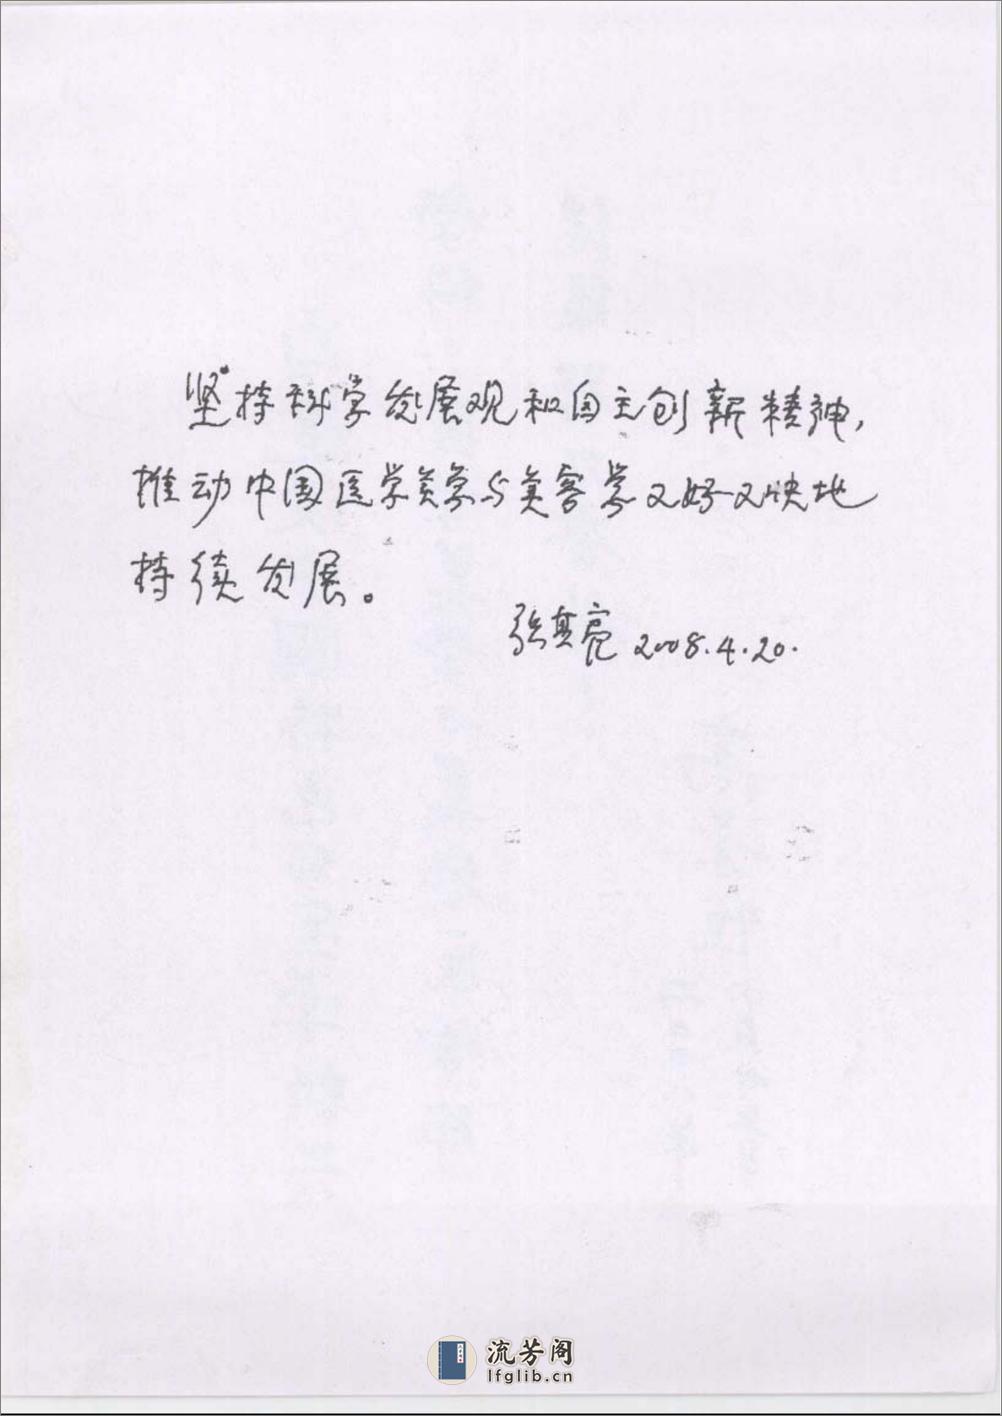 坚持科学发展观和自主创新精神，
推动中国医学美学与美容学又好又快地
持续发展。
张其亮 2008.4.20.
流芳阁
lfglib.cn